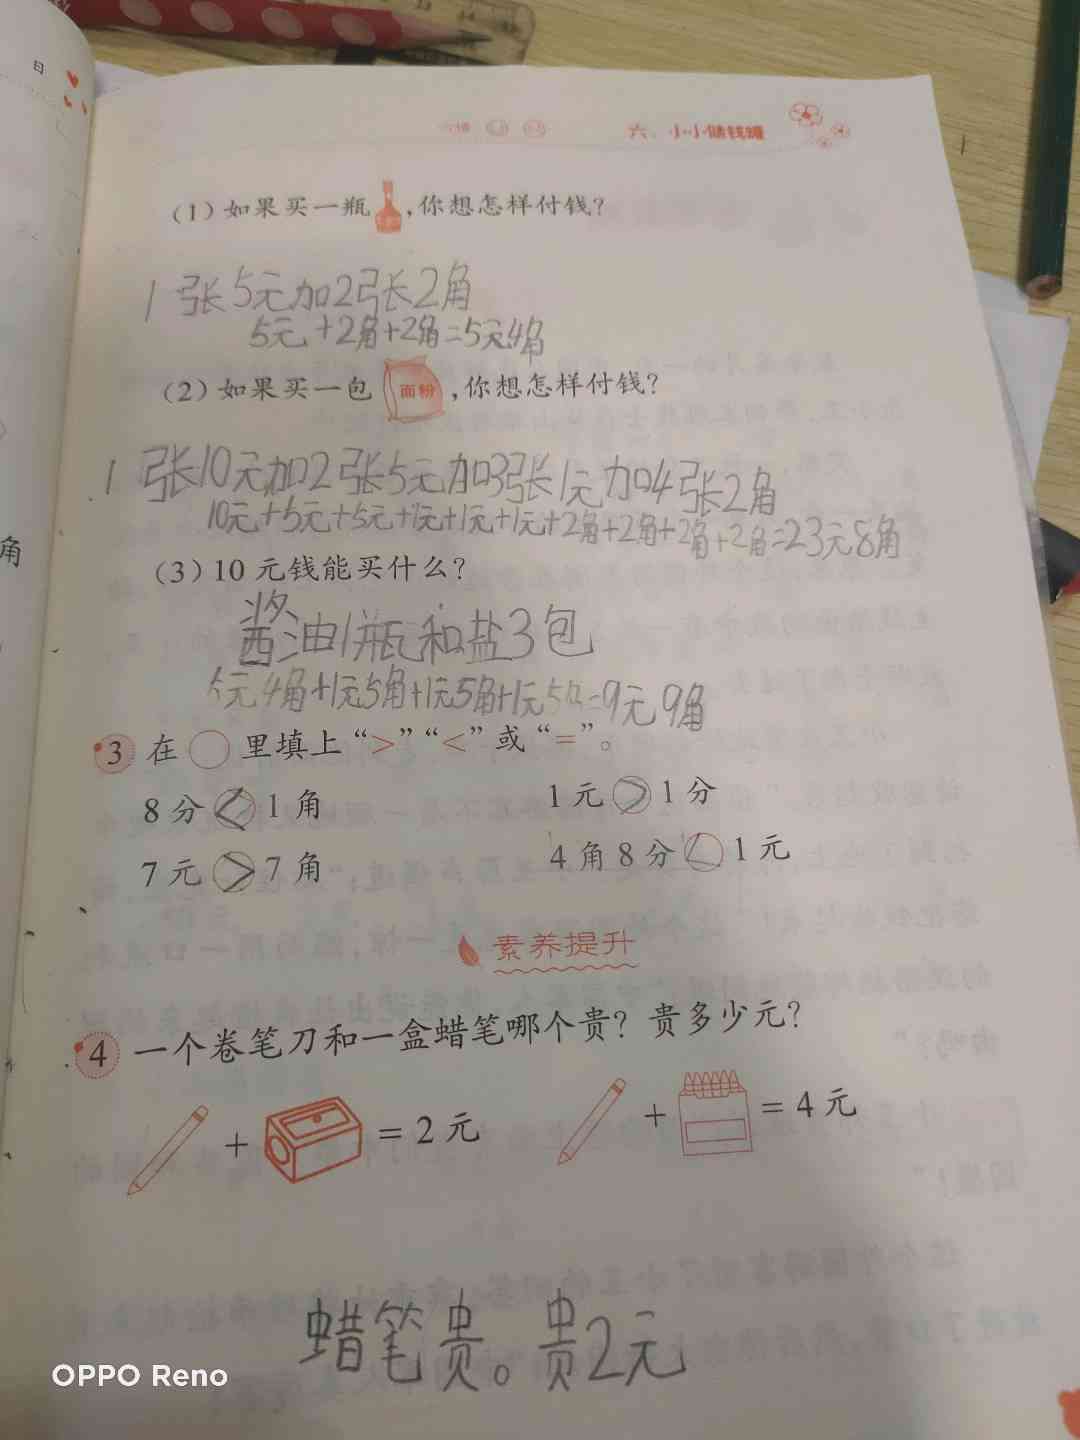 日
六、小小储钱罐
(1)如果买一瓶,你想怎样付钱?
1张5元加2张2角
5元+2角+2角=5元4角
(2)如果买一包面粉,你想怎样付钱?
1张10元加2张5元加3张1元加4张2角
10元+5元+5元+1元+1元+1元+2角+2角+2角+2角=23元8角
角
(3)10元钱能买什么?
酱油1瓶和盐3包
5元4角+1元5角+1元5角+1元5角=9元9角
3 在○里填上“>”“<”或“=”。
8分<1角 1元>1分
7元>7角 4角8分<1元
素养提升
4 一个卷笔刀和一盒蜡笔哪个贵?贵多少元?
+ =2元 + =4元
蜡笔贵。贵2元
OPPO Reno